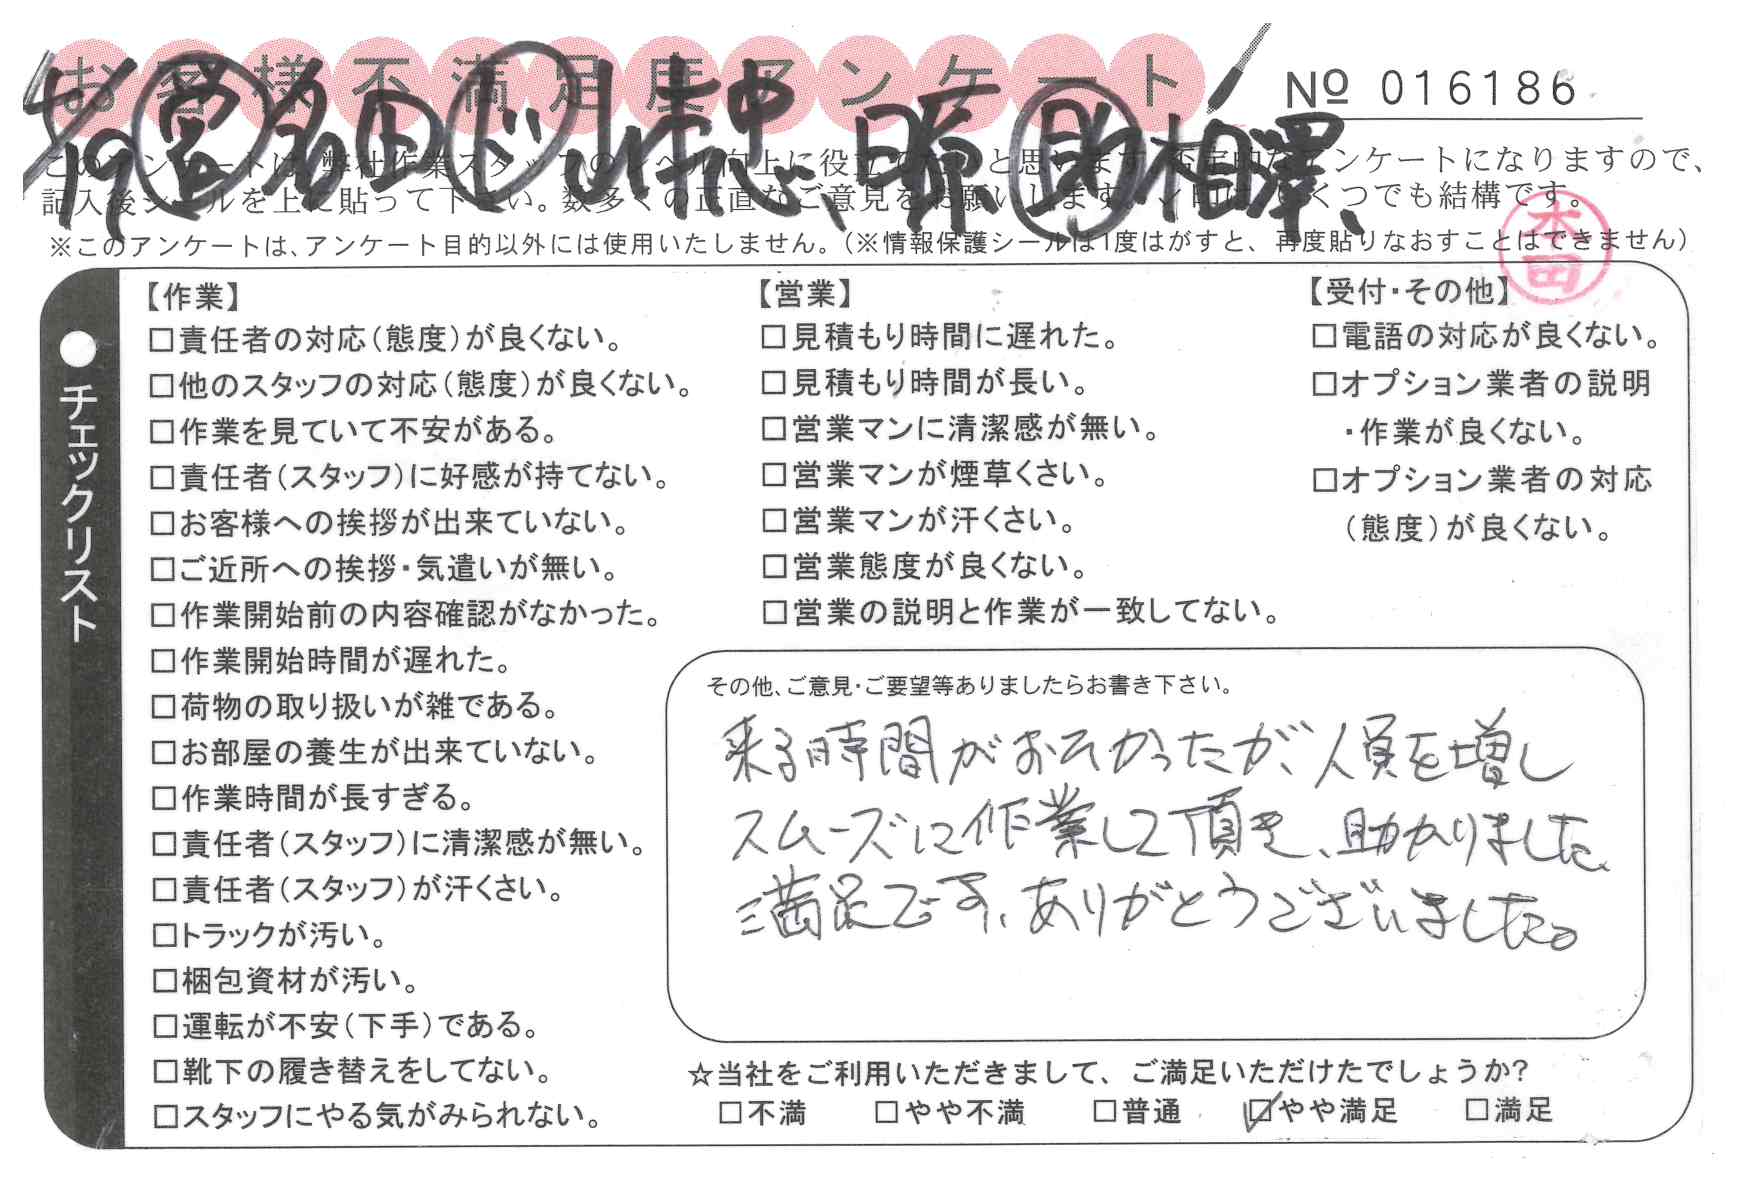 お客様不満足度アンケート
№ 016186
4/19 営 名田 ド 小林忠、日節 助 相澤、
このアンケートは、弊社作業スタッフのレベル向上に役立てたいと思います。否定的なアンケートになりますので、
記入後シールを上に貼って下さい。数多くの正直なご意見をお願いします。レ印は、いくつでも結構です。
※このアンケートは、アンケート目的以外には使用いたしません。(※情報保護シールは1度はがすと、再度貼りなおすことはできません)
本田
●チェックリスト
【作業】
□責任者の対応(態度)が良くない。
□他のスタッフの対応(態度)が良くない。
□作業を見ていて不安がある。
□責任者(スタッフ)に好感が持てない。
□お客様への挨拶が出来ていない。
□ご近所への挨拶・気遣いが無い。
□作業開始前の内容確認がなかった。
□作業開始時間が遅れた。
□荷物の取り扱いが雑である。
□お部屋の養生が出来ていない。
□作業時間が長すぎる。
□責任者(スタッフ)に清潔感が無い。
□責任者(スタッフ)が汗くさい。
□トラックが汚い。
□梱包資材が汚い。
□運転が不安(下手)である。
□靴下の履き替えをしてない。
□スタッフにやる気がみられない。
【営業】
□見積もり時間に遅れた。
□見積もり時間が長い。
□営業マンに清潔感が無い。
□営業マンが煙草くさい。
□営業マンが汗くさい。
□営業態度が良くない。
□営業の説明と作業が一致してない。
【受付・その他】
□電語の対応が良くない。
□オプション業者の説明
・作業が良くない。
□オプション業者の対応
(態度)が良くない。
その他、ご意見・ご要望等ありましたらお書き下さい。
来る時間がおそかったが、人員を増し
スムーズに作業して頂き、助かりました。
満足です、ありがとうございました。
☆当社をご利用いただきまして、ご満足いただけたでしょうか?
□不満 □やや不満 □普通 ☑やや満足 □満足